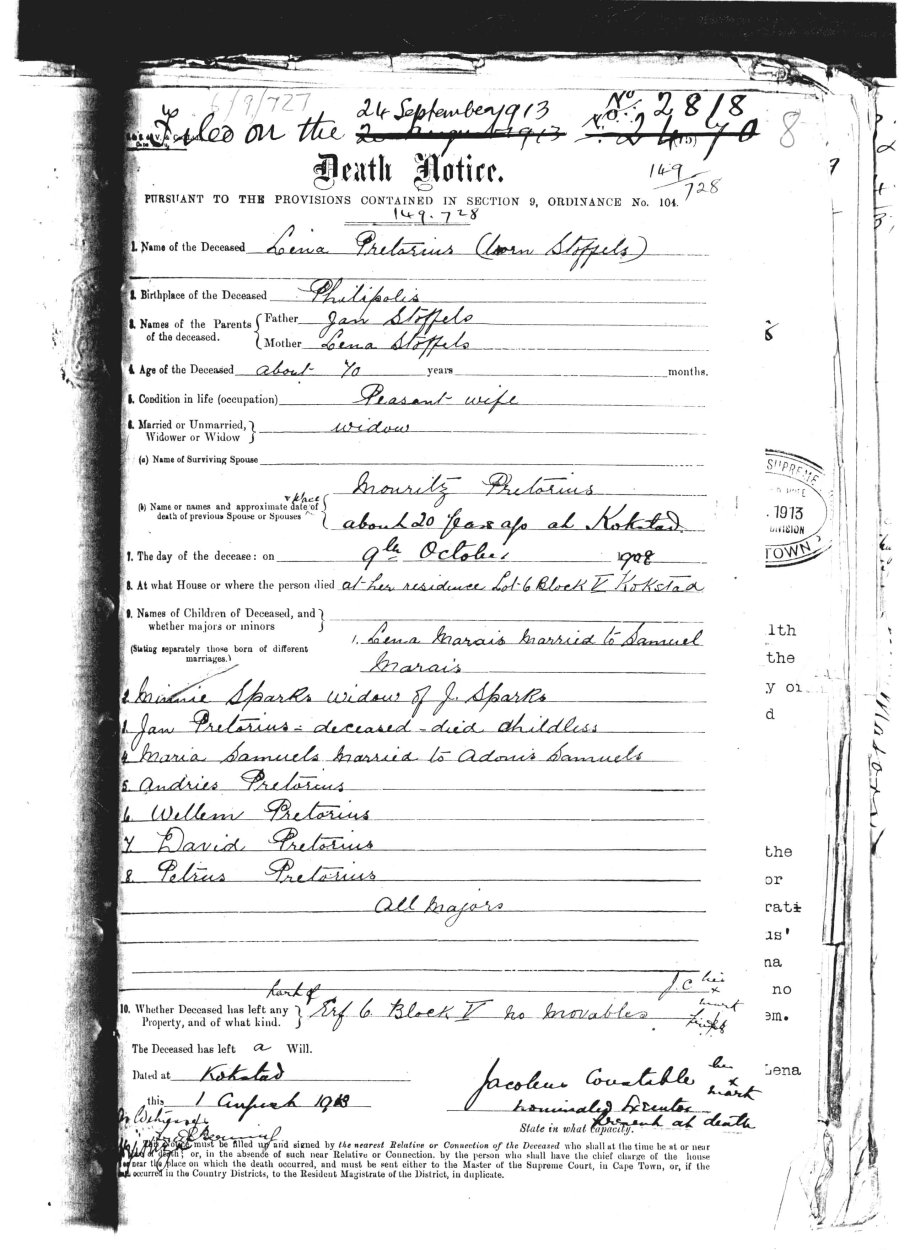 6/9/727
24 September 1913 No. 2818
Filed on the 2470 8
(15)
Death Notice.
149/728
PURSUANT TO THE PROVISIONS CONTAINED IN SECTION 9, ORDINANCE No. 104.
149.728
1. Name of the Deceased Lena Pretorius (born Stoffels)
2. Birthplace of the Deceased Philipolis
3. Names of the Parents of the deceased. { Father Jan Stoffels
Mother Lena Stoffels
4. Age of the Deceased about 70 years months.
5. Condition in life (occupation) Peasant wife
6. Married or Unmarried, Widower or Widow } widow
(a) Name of Surviving Spouse
Mouritz Pretorius
(b) Name or names and approximate date & place of
death of previous Spouse or Spouses about 20 years ago at Kokstad
7. The day of the decease: on 9th October 1908
8. At what House or where the person died at her residence Lot 6 Block V Kokstad
9. Names of Children of Deceased, and whether majors or minors }
(Stating separately those born of different marriages.)
1. Lena Marais Married to Samuel
Marais
2. Minnie Sparks widow of J. Sparks
3. Jan Pretorius - deceased - died childless
4. Maria Samuels Married to Adonis Samuels
5. Andries Pretorius
6. Willem Pretorius
7. David Pretorius
8. Petrus Pretorius
All Majors
J.C his
x
mark
10. Whether Deceased has left any Property, and of what kind. } part of Erf 6 Block V no movables
The Deceased has left a Will.
Dated at Kokstad
this 1 August 1913
Jacobus Constable his
x
mark
nominated Executor
present at death
State in what capacity.
This Notice must be filled up and signed by the nearest Relative or Connection of the Deceased who shall at the time be at or near
place of death; or, in the absence of such near Relative or Connection. by the person who shall have the chief charge of the house
or near the place on which the death occurred, and must be sent either to the Master of the Supreme Court, in Cape Town, or, if the
death occurred in the Country Districts, to the Resident Magistrate of the District, in duplicate.
SUPREME
1913
DIVISION
TOWN
lth
the
y or
d
the
or
rati
us'
na
no
em.
Lena